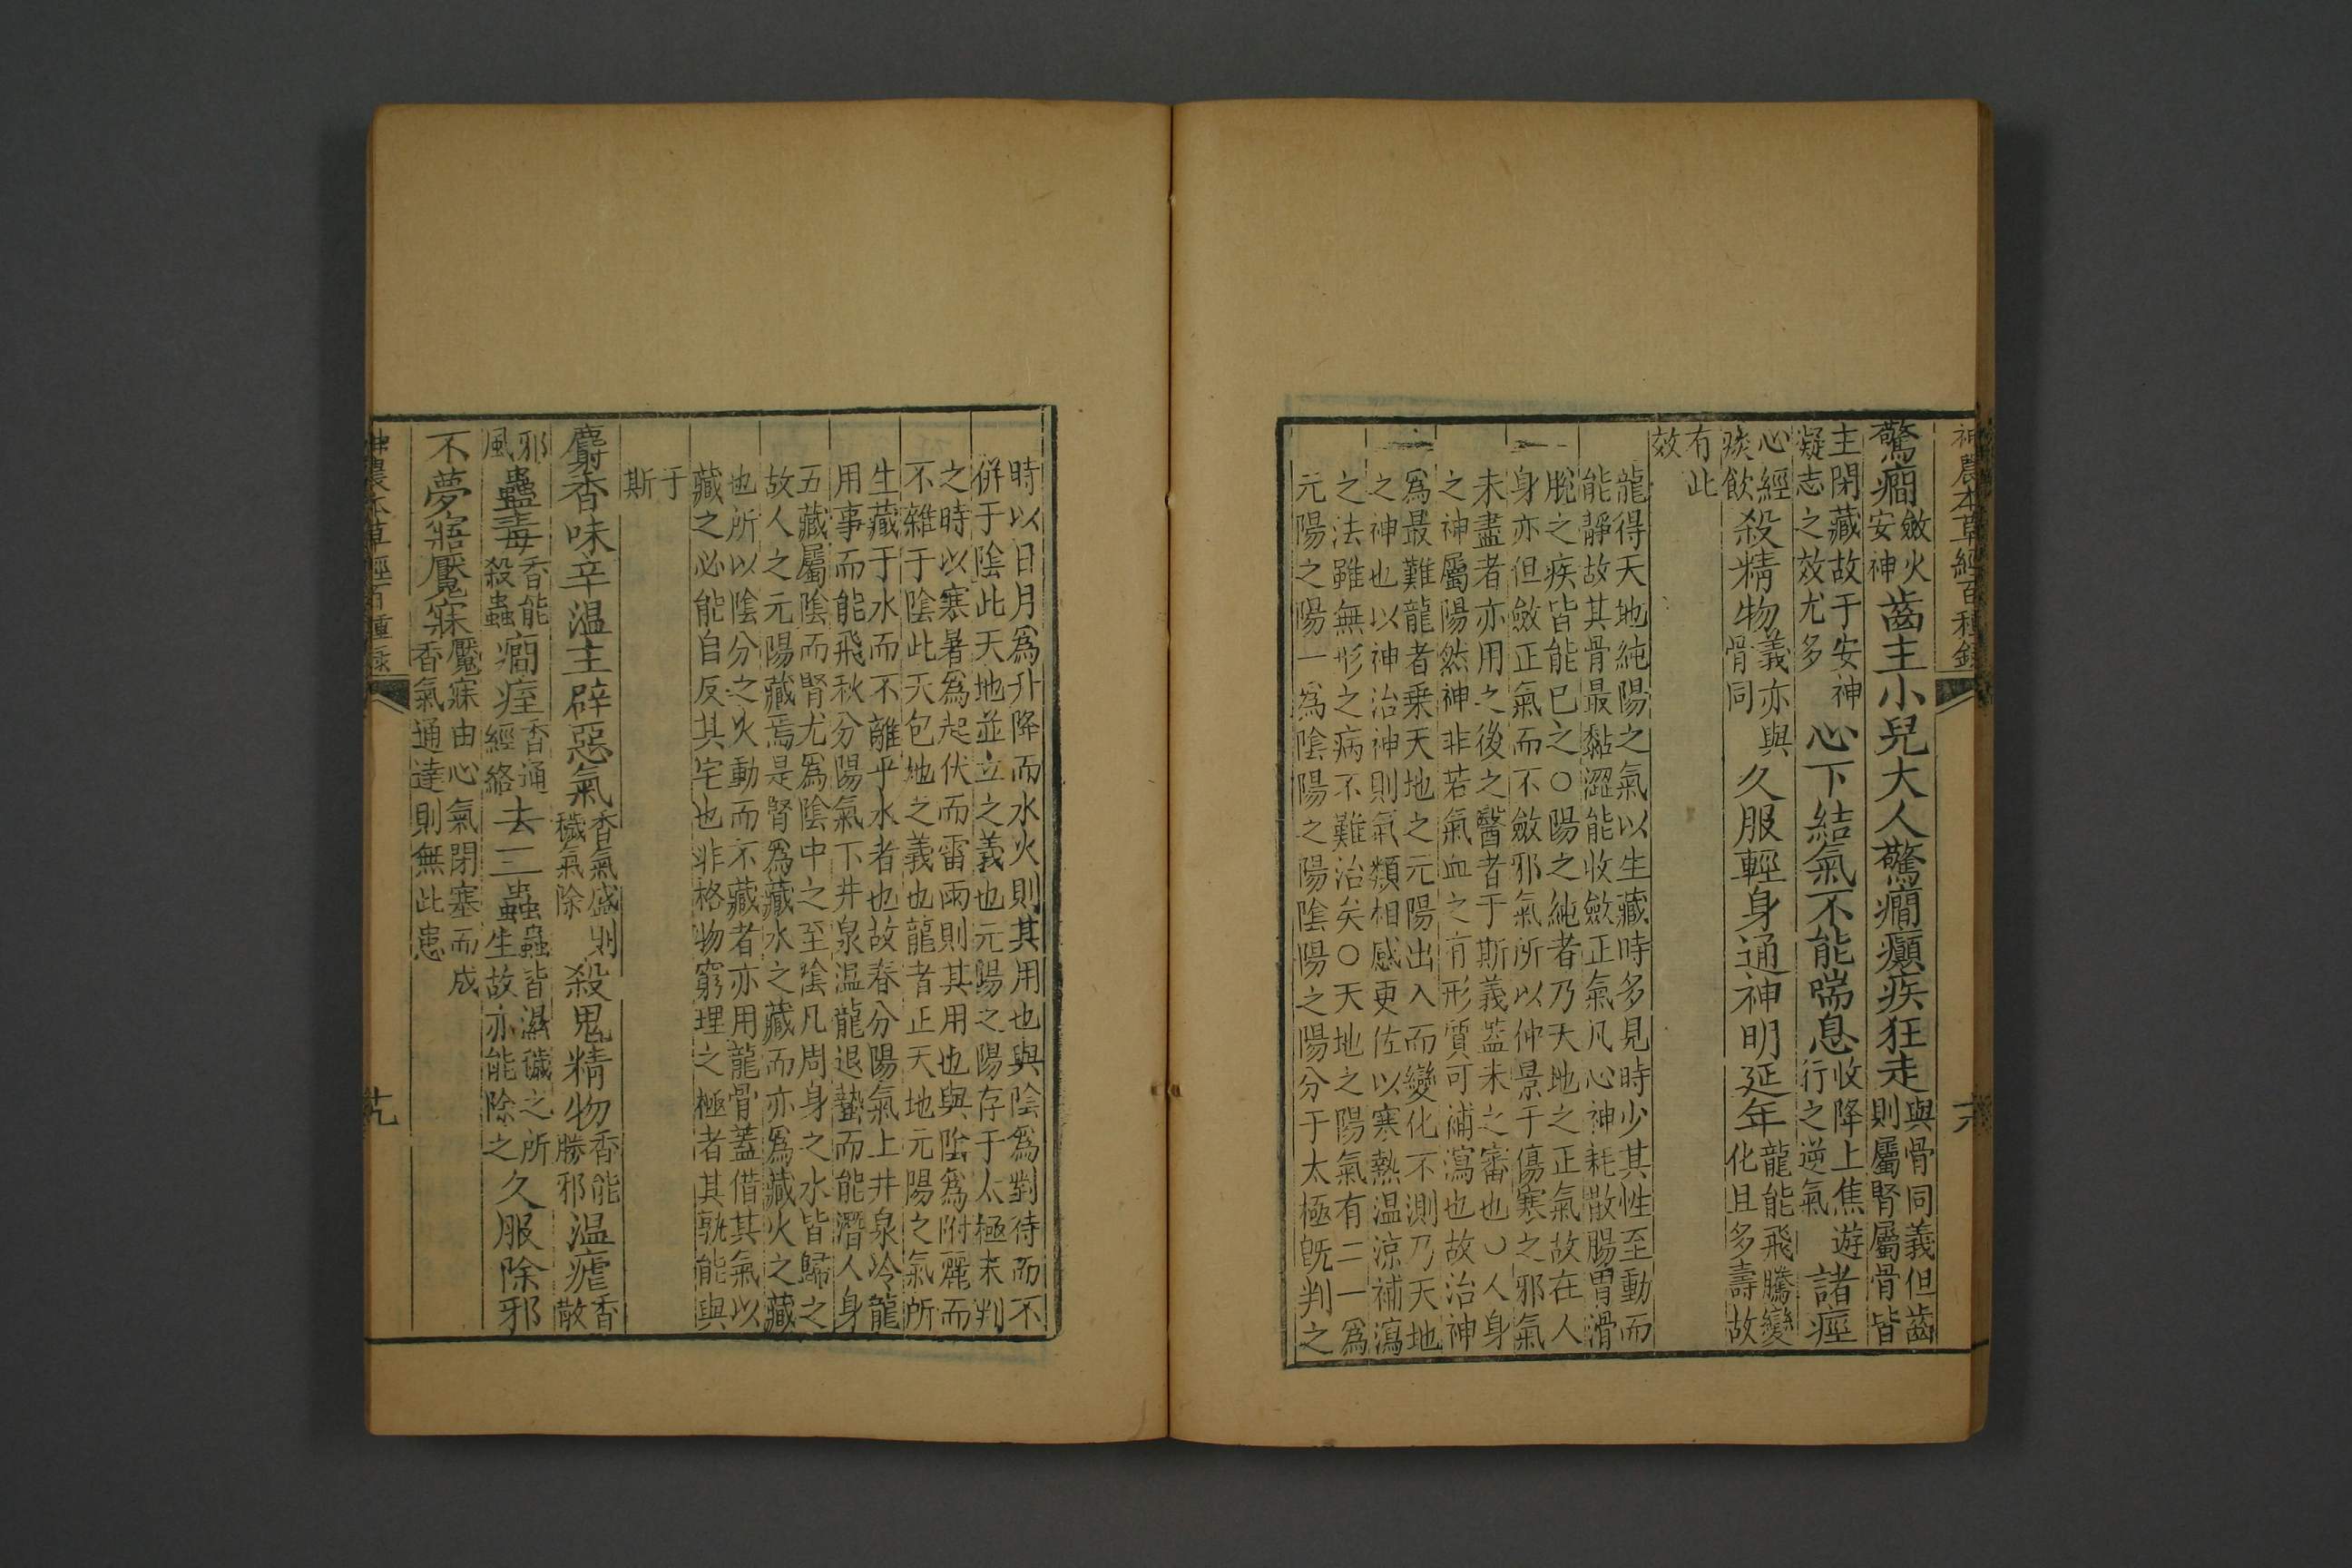 神農本草經百種錄
十八
驚癇斂火安神齒主小兒大人驚癇癲疾狂走與骨同義但齒則屬腎屬骨皆
主閉藏故于安神凝志之效尤多心下結氣不能喘息收降上焦遊行之逆氣諸痙
心經痰飲殺精物義亦與骨同久服輕身通神明延年龍能飛騰變化且多壽故
有此效
龍得天地純陽之氣以生藏時多見時少其性至動而
能靜故其骨最黏澀能收斂正氣凡心神耗散腸胃滑
脫之疾皆能已之○陽之純者乃天地之正氣故在人
身亦但斂正氣而不斂邪氣所以仲景于傷寒之邪氣
未盡者亦用之後之醫者于斯義蓋未之審也○人身
之神屬陽然神非若氣血之有形質可補瀉也故治神
爲最難龍者乗天地之元陽出入而變化不測乃天地
之神也以神治神則氣類相感更佐以寒熱温涼補瀉
之法雖無形之病不難治矣○天地之陽氣有二一爲
元陽之陽一爲陰陽之陽陰陽之陽分于太極旣判之
時以日月爲升降而水火則其用也與陰爲對待而不
併于陰此天地並立之義也元陽之陽存于太極未判
之時以寒暑爲起伏而雷雨則其用也與陰爲附麗而
不雜于陰此天包地之義也龍者正天地元陽之氣所
生藏于水而不離乎水者也故春分陽氣上井泉冷龍
用事而能飛秋分陽氣下井泉温龍退蟄而能潛人身
五藏屬陰而腎尤爲陰中之至陰凡周身之水皆歸之
故人之元陽藏焉是腎爲藏水之藏而亦爲藏火之藏
也所以陰分之火動而不藏者亦用龍骨蓋借其氣以
藏之必能自反其宅也非格物窮理之極者其孰能與
于斯
麝香味辛温主辟惡氣香氣盛則穢氣除殺鬼精物香能勝邪温瘧香散
邪風蠱毒香能殺蟲癇痓香通經絡去三蟲蟲皆濕穢之所生故亦能除之久服除邪
不夢寤魘寐魘寐由心氣閉塞而成香氣通達則無此患
神農本草經百種錄
十九